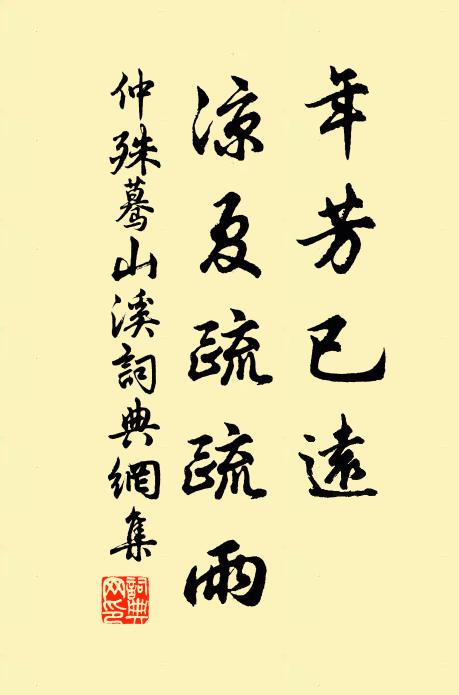 年芳已遠
涼夏疏疏雨
仲殊驀山溪詞典網集
詞典網印